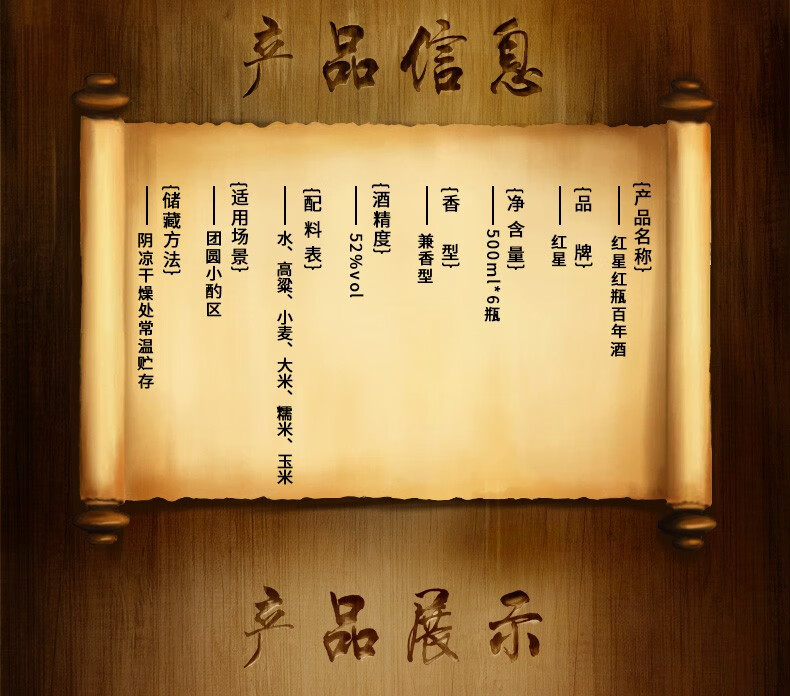 产品信息
{产品名称}
红星红瓶百年酒
{品 牌}
红星
{净含量}
500ml*6瓶
{香 型}
兼香型
{酒精度}
52%vol
{配料表}
水、高粱、小麦、大米、糯米、玉米
{适用场景}
团圆小酌区
{储藏方法}
阴凉干燥处常温贮存
产品展示